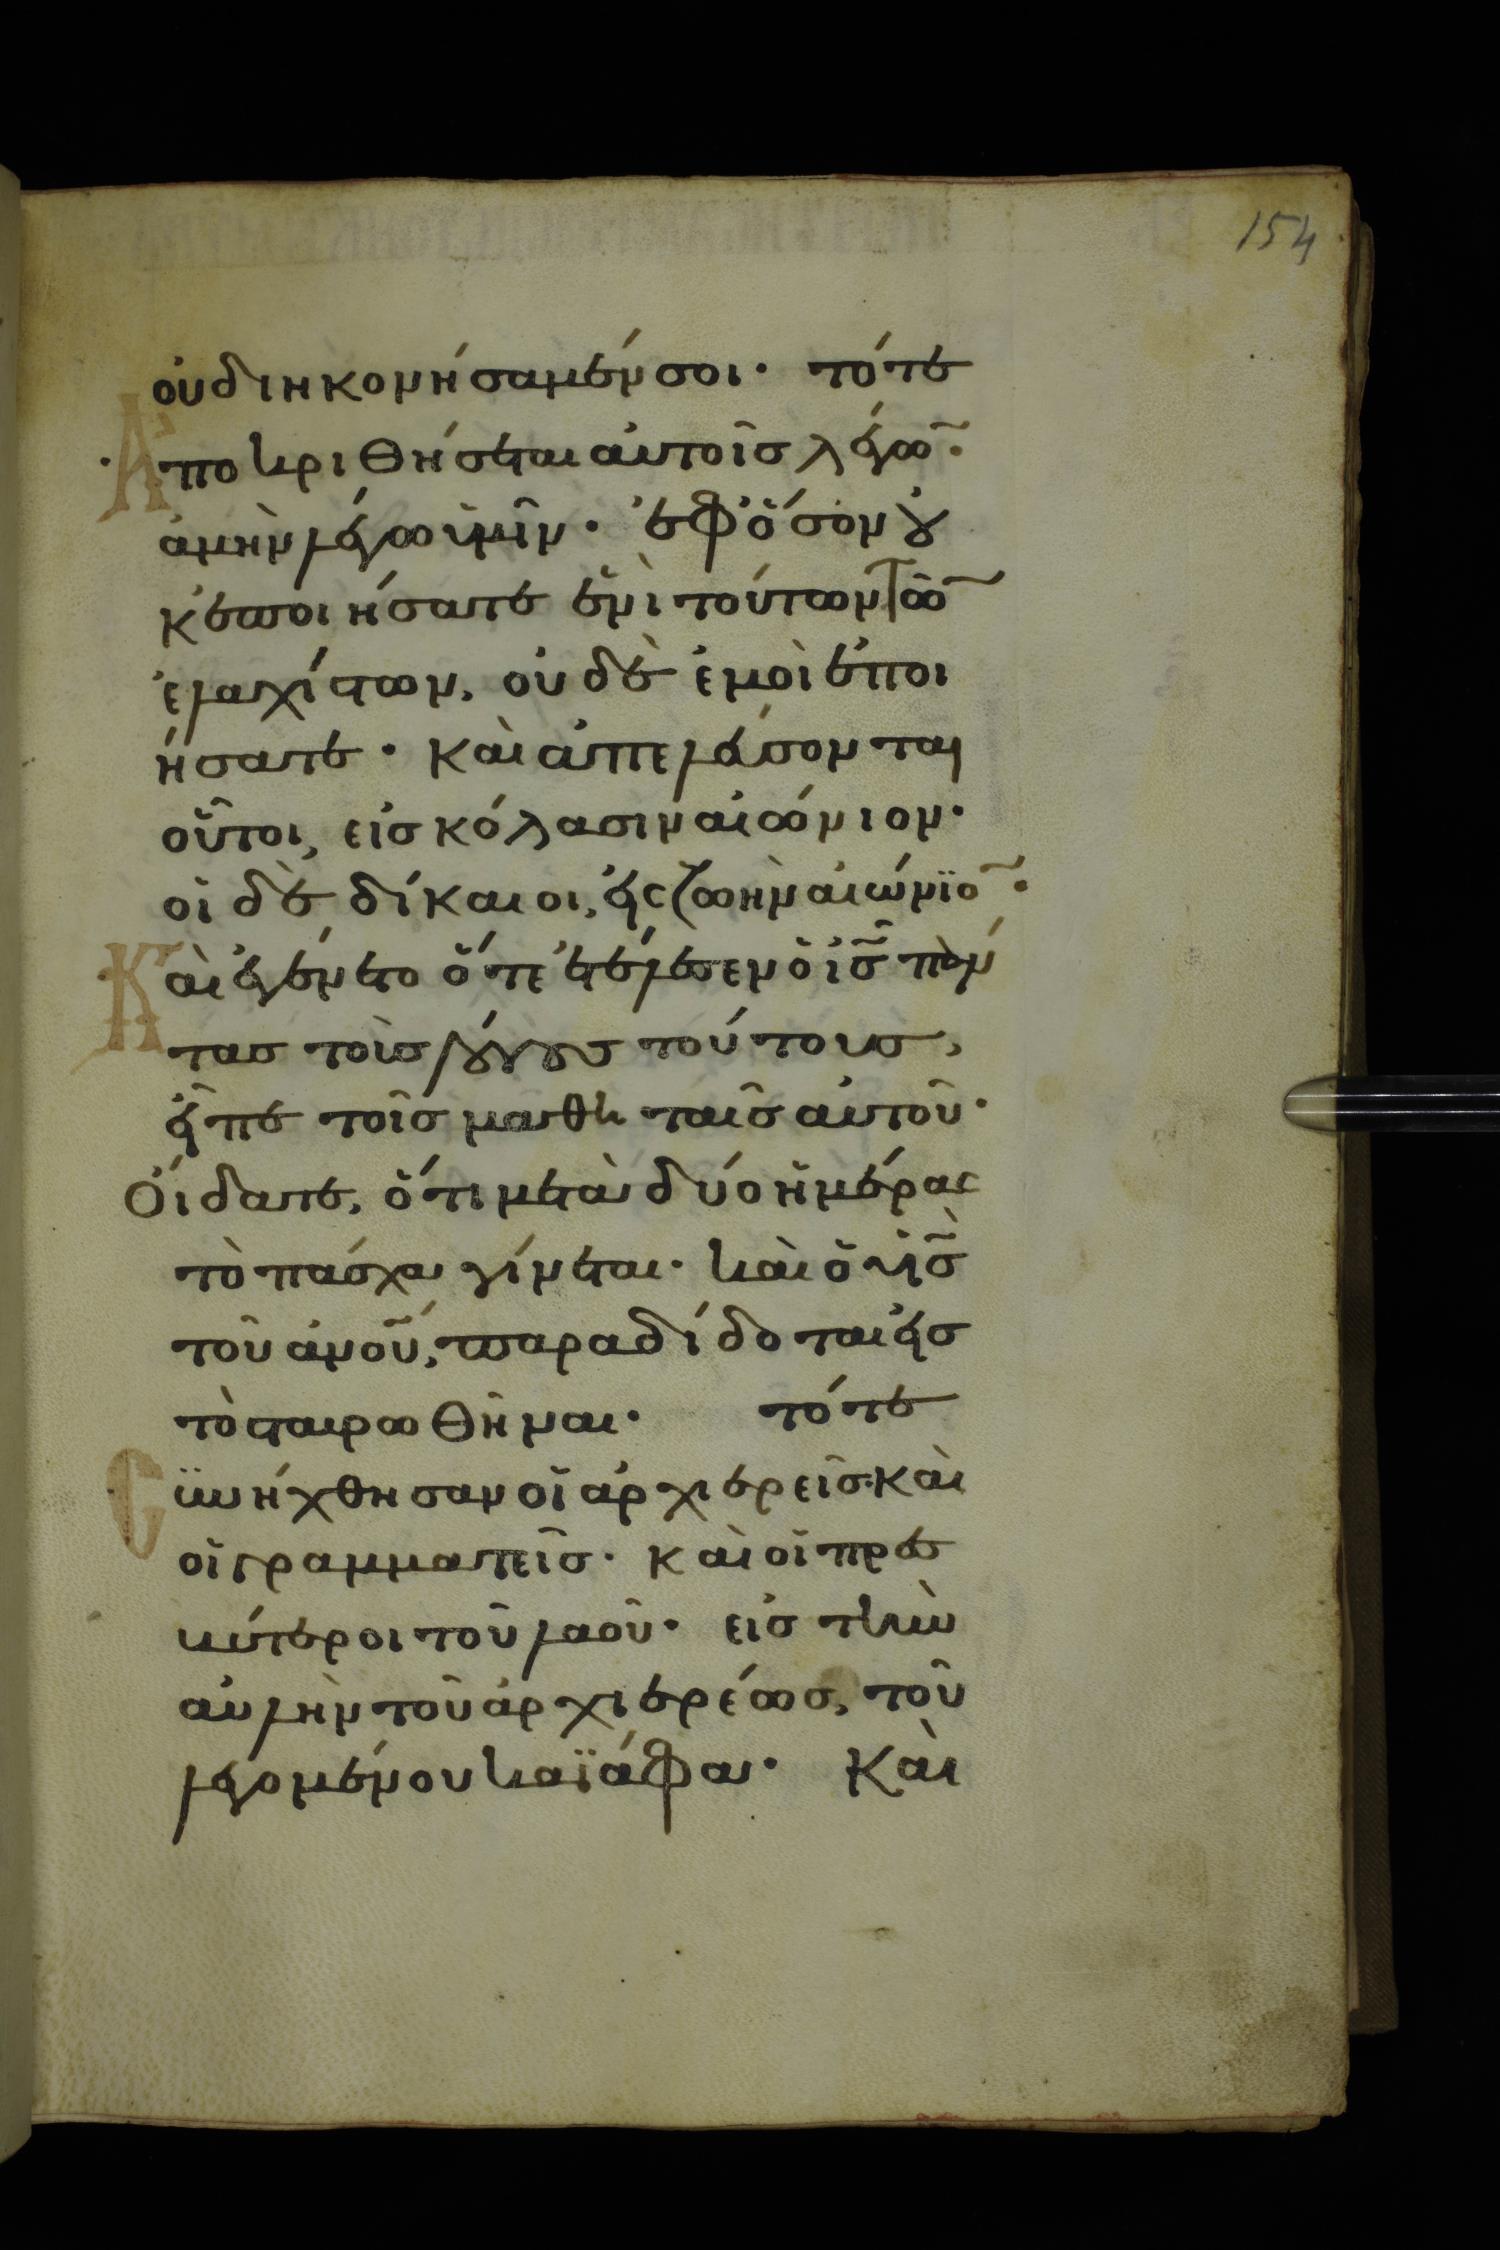 154
οὐ διηκονήσαμέν σοι· τότε
Ἀποκριθήσεται αὐτοῖς λέγω̃·
ἀμὴν λέγω ὑμῖν· ἐφ ὅσον οὐ
κ ἐποιήσατε ἑνὶ τούτων τῶ̃
ἐλαχίστων, οὐδὲ ἐμοὶ ἐποι
ήσατε· καὶ ἀπελεύσονται
οὗτοι, εἰς κόλασιν αἰώνιον·
οἱ δὲ δίκαιοι, εἰς ζωὴν αἰώνϊο̃·
Καὶ ἐγένετο ὅτε ἐτέλεσεν ὁ ἰ̅ς̅ πάν
τας τοὺς λόγους τούτους,
εἶπε τοῖς μαθηταῖς αὐτοῦ·
Οἴδατε, ὅτι μετὰ δύο ἡμέρας
τὸ πάσχα γίνεται· καὶ ὁ υἱ̅ς̅
τοῦ ἀν̅ο̅υ̅, παραδίδοται εἰς
τὸ σταυρωθῆναι· τότε
Συνήχθησαν οἱ ἀρχιερεῖς· καὶ
οἱ γραμματεῖς· καὶ οἱ πρεσ
βύτεροι τοῦ λαοῦ· εἰς τὴν
αὐλὴν τοῦ ἀρχιερέως, τοῦ
λεγομένου καϊάφα· Καὶ